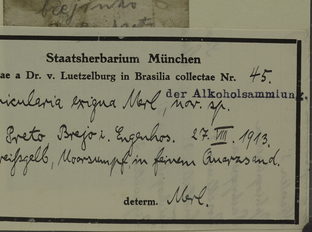 brejinho
Staatsherbarium München
ae a Dr. v. Luetzelburg in Brasilia collectae Nr. 45.
der Alkoholsammlung.
ricularia exigua Merl, nov. sp.
Preto Brejo i. Engenhos. 27. VIII. 1913.
eissgelb, Moorsumpf in feinem Quarzsand.
determ. Merl.